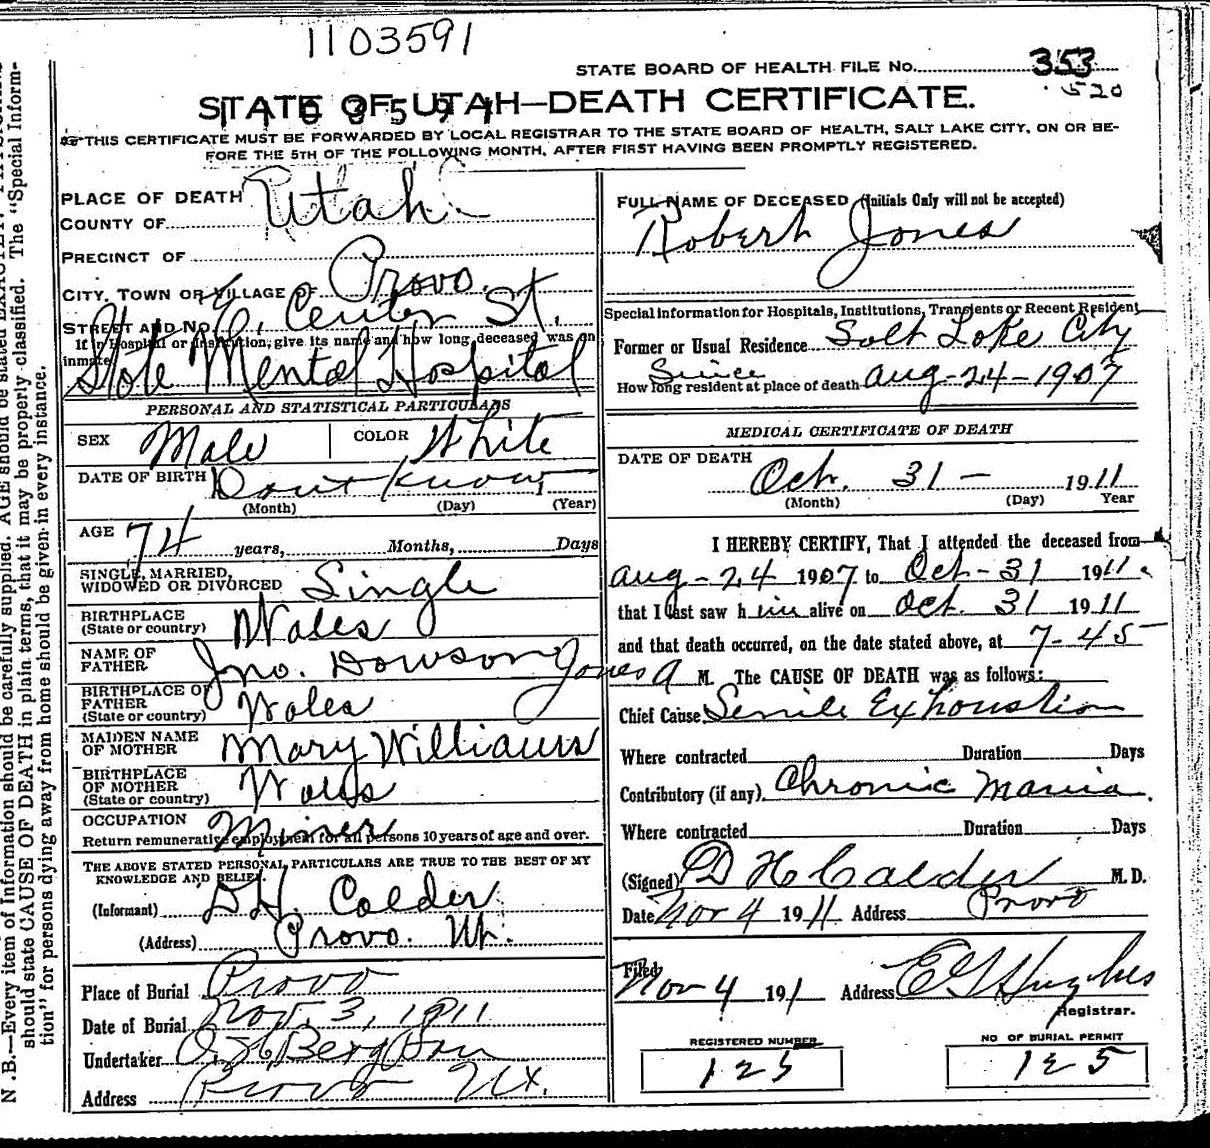 1103591
STATE BOARD OF HEALTH FILE No. 353
520
STATE OF UTAH—DEATH CERTIFICATE.
1103591
THIS CERTIFICATE MUST BE FORWARDED BY LOCAL REGISTRAR TO THE STATE BOARD OF HEALTH, SALT LAKE CITY, ON OR BE-
FORE THE 5TH OF THE FOLLOWING MONTH, AFTER FIRST HAVING BEEN PROMPTLY REGISTERED.
PLACE OF DEATH
COUNTY OF Utah
PRECINCT OF
CITY, TOWN OR VILLAGE OF Provo.
STREET AND No. E. Center St.
If in Hospital or Institution, give its name and how long deceased was an
inmate
State Mental Hospital
PERSONAL AND STATISTICAL PARTICULARS
SEX Male COLOR White
DATE OF BIRTH Dont Know 1
(Month) (Day) (Year)
AGE 74 years, Months, Days
SINGLE, MARRIED,
WIDOWED OR DIVORCED Single
BIRTHPLACE
(State or country) Wales
NAME OF
FATHER Jno. Dowson Jones
BIRTHPLACE OF
FATHER
(State or country) Wales
MAIDEN NAME
OF MOTHER Mary Williams
BIRTHPLACE
OF MOTHER
(State or country) Wales
OCCUPATION Miner
Return remunerative employment for all persons 10 years of age and over.
THE ABOVE STATED PERSONAL PARTICULARS ARE TRUE TO THE BEST OF MY
KNOWLEDGE AND BELIEF.
(Informant) D H. Calder
(Address) Provo. Ut.
Place of Burial Provo
Date of Burial Nov. 3, 1911
Undertaker Berg
Address Provo Ut.
FULL NAME OF DECEASED (Initials Only will not be accepted)
Robert Jones
Special information for Hospitals, Institutions, Transients or Recent Resident
Former or Usual Residence Salt Lake City
Since
How long resident at place of death Aug-24-1907
MEDICAL CERTIFICATE OF DEATH
DATE OF DEATH
Oct. 31 - 1911
(Month) (Day) Year
I HEREBY CERTIFY, That I attended the deceased from
Aug-24 1907 to Oct-31 1911
that I last saw him alive on Oct. 31 1911
and that death occurred, on the date stated above, at 7-45
A M. The CAUSE OF DEATH was as follows:
Chief Cause Senile Exhaustion
Where contracted Duration Days
Contributory (if any) Chronic Mania.
Where contracted Duration Days
(Signed) D H Calder M. D.
Date Nov 4 1911 Address Provo
Filed
Nov 4 191 Address E G Hughes
Registrar.
REGISTERED NUMBER
125
NO OF BURIAL PERMIT
125
N.B.—Every item of information should be carefully supplied. AGE should be stated EXACTLY.
should state CAUSE OF DEATH in plain terms, that it may be properly classified. The "Special Inform-
tion" for persons dying away from home should be given in every instance.